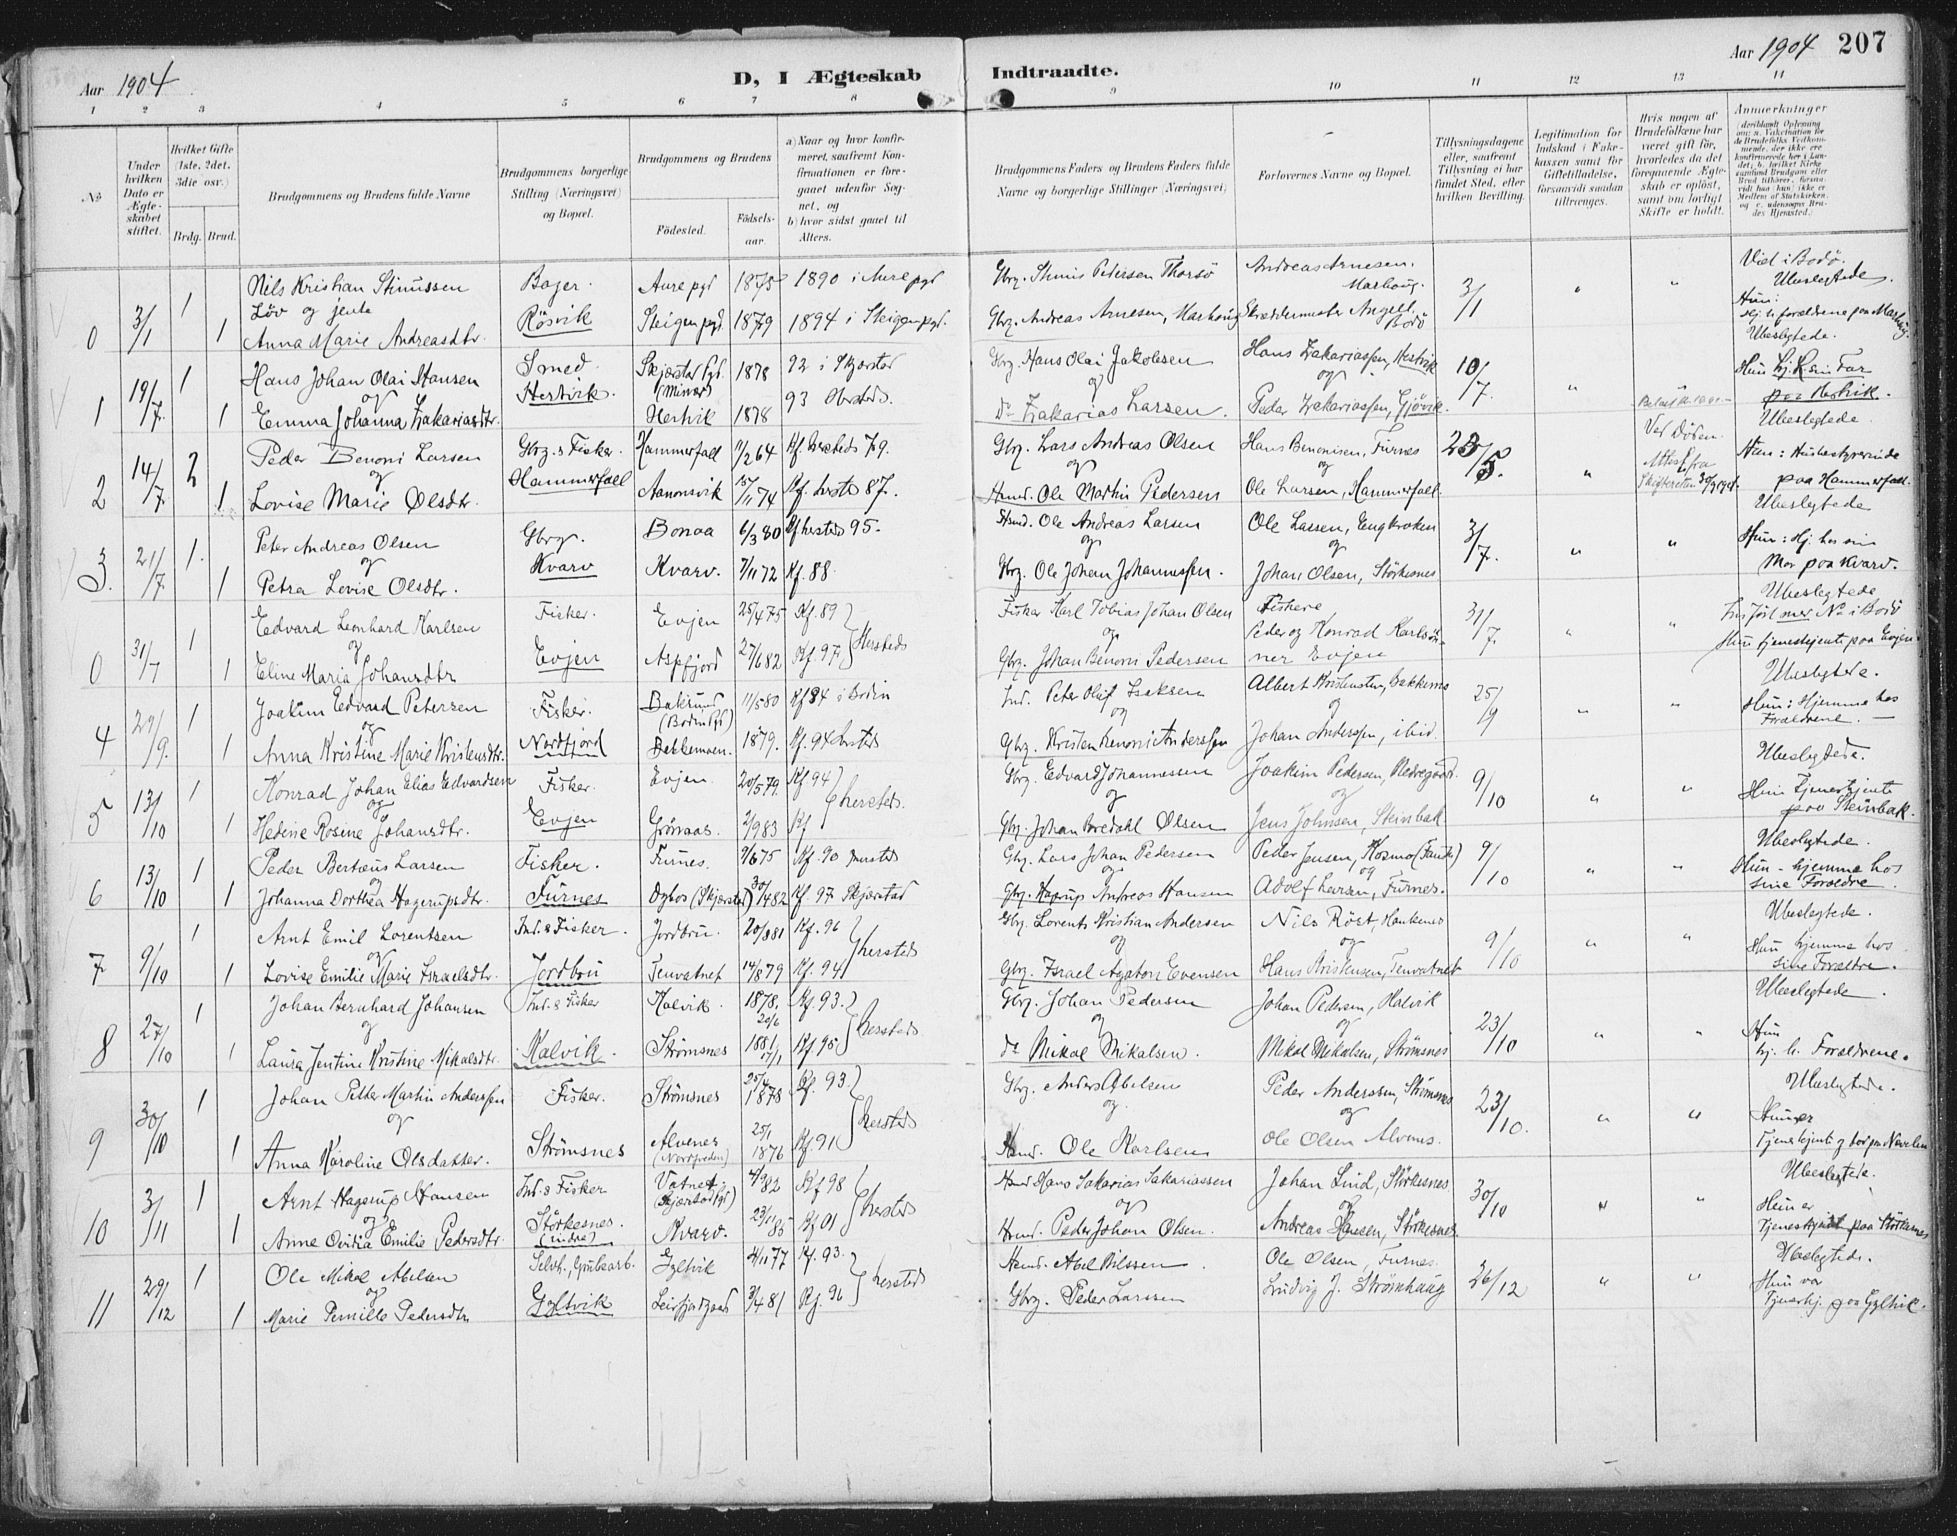 Aar 1904
D, I Ægteskab Indtraadte.
Aar 1904 207
1 2 3 4 5 6 7 8 9 10 11 12 13 14
No
Under hvilken Dato er Ægteskabet stiftet.
Hvilket Gifte (1ste, 2det, 3die osv.)
Brdg. Brud.
Brudgommens og Brudens fulde Navne
Brudgommens borgerlige Stilling (Næringsvei) og Bopæl.
Brudgommens og Brudens
Födested. Födselsaar.
a) Naar og hvor konfirmeret, saafremt Konfirmationen er foregaaet udenfor Sognet, og
b) hvor sidst gaaet til Alters.
Brudgommens Faders og Brudens Faders fulde Navne og borgerlige Stillinger (Næringsvei)
Forlovernes Navne og Bopæl.
Tillysningsdagene eller, saafremt Tillysning ei har fundet Sted, efter hvilken Bevilling.
Legitimation for Indskud i Enkekassen samt for Giftetilladelse, forsaavidt saadan tiltrænges.
Hvis nogen af Brudefolkene har været gift för, hvorledes da det foregaaende Ægteskab er oplöst, samt om lovligt Skifte er holdt.
Anmerkninger
0 3/1 1 Nils Kristian Stinussen Bager. Aure pgd 1875 1890 i Aure pgd Gbrg. Stinus Petersen Thorsö Andreas Arnesen, Marhoug. 3/1 " " Viet i Bodö. Ubeslegtede.
Löv og jente
1 Anna Marie Andreasdtr. Rösvik Steigen pgd. 1879 1894 i Steigen pgd. Gbrg. Andreas Arnesen, Marhoug Skræddermester Angell, Bodö Hun: hj. h. forældrene paa Marhoug.
1 19/7 1 Hans Johan Olai Hansen Smed Skjerstad Pgd. 1878 92 i Skjerstad Gbrg. Hans Olai Jakobsen Hans Zakariassen, Hestvik 10/7. " Ubeslegtede.
og og og
1 Emma Johanna Zakariasdtr. Hertvik. Hertvik 1878 93 Do. Zakarias Larsen. Peder Zakariassen, Gjövik. paa Hestvik.
2 14/7 2 Peder Benoni Larsen Gbrg. & Fisker. Hammerfall 11/2 64 Kf. hersteds 79. Gbrg. Lars Andreas Olsen Hans Benonisen, Furnes 23/5. " Ved Döden. Ubeslegtede
og og og
1 Lovise Marie Olsdtr. Hammerfall Aanonsvik 15/11 74 Kf. hersteds 87. Ole Martin Pedersen Ole Larsen, Hammerfall Attest fra Skifteretten Hun: Husbestyrerinde paa Hammerfall.
3. 21/7 1. Peter Andreas Olsen Gbrg. Bonaa 6/3 80 Kf hersteds 95. Ole Andreas Larsen Ole Larsen, Engkroken 3/7. " " Ubeslegtede
og og og
1 Petra Lovise Olsdtr. Kvarv Kvarv. 7/11 72 Kf. 88 Gbrg. Ole Johan Johannessen. Johan Olsen, Störkesnes Hun: Hj. hos sin Mor paa Kvarv.
0 31/7 1 Edvard Lenhard Karlsen Fisker. Evjen 25/4 75 Kf. 89 Fisker Karl Tobias Johan Olsen Fiskere 31/7. " " Ubeslegtede
og hersteds og
1 Eline Maria Johansdtr Evjen Aspfjord 27/6 82 Kf. 97 Gbrg. Johan Benoni Pedersen Peder og Konrad Karlsönner Evjen Hun tjenestejente paa Evjen.
4 29/9. Joakim Edvard Petersen Fisker. (Bodin Pgd) 11/5 80 Kf 94 i Bodin Ind. Peter Olaf Isaksen Albert Kristensen, Bakkemo 25/9 " " Ubeslegtede.
og og og
1 Anna Kristine Marie Kristensdtr. Nordfjord Bakkemoen. 1879. Kf. 94 hersteds Gbrg. Kristen Benoni Anderssen Johan Anderssen, ibid. Hun: Hjemme hos Forældrene. —
5 13/10 1 Konrad Johan Elias Edvardsen Fisker. Evjen. 20/5 79. Kf 94 Gbrg. Edvard Johannessen Joakim Pedersen, 9/10 " " Ubeslegtede.
og hersteds. og og
1 Hedine Rosine Johansdtr. Evjen Grönaas. 2/9 83 Kf Gbrg. Johan Bredahl Olsen Jens Johnsen, Steinbak Hun Tjenestejente paa Steinbak.
6 13/10 1 Peder Bertæus Larsen Fisker. Furnes. 9/6 75 Kf. 90 hersteds Gbrg. Lars Johan Pedersen Peder Jensen, Kosmo (Fauske) 9/10 " " Ubeslegtede.
og og og
1 Johanna Dorthea Hagerupsdtr. Furnes (Skjerstad) 30/1 82 Kf. 97 Skjerstad Gbrg. Hagrup Andreas Hansen Adolf Larsen, Furnes. Hun - hjemme hos sine Forældre.
7 9/10 1 Arnt Emil Lorentsen Ind. & Fisker. Jordbru. 20/8 81 Kf. 96 Gbrg. Lorents Kristian Andersen Nils Röst, 9/10 " " Ubeslegtede.
og hersteds og og
1 Lovise Emilie Marie Israelsdtr. Jordbru Tenvatnet 14/8 79 Kf. 94 Gbrg. Israel Agaton Evensen Hans Kristensen, Tenvatnet Hun hjemme hos sine Forældre.
8 27/10 1 Johan Bernhard Johansen Ind. & Fisker Kalvik. 1878. 20/6 Kf. 93. Gbrg. Johan Pedersen Johan Pedersen, Kalvik 23/10 " " Ubeslegtede.
og hersteds og og
1 Laura Jentine Kristine Mikalsdtr. Kalvik. Strömsnes 1881, 17/1 Kf. 95 Do. Mikal Mikalsen. Mikal Mikalsen, Strömsnes Hun hj. h. Forældrene.
9 30/10 1 Johan Petter Martin Anderssen Fisker. Strömsnes 25/4 1878 Kf. 93 Gbrg. Anders Abelsen Peder Anderssen, Strömsnes 23/10. " " Ubeslegtede.
og hersteds og. og
1 Anna Karoline Olsdatter. Strömsnes Alvenes (Nordfjorden) 25/1 1876 Kf. 91 Ole Karlsen Ole Olsen Alvenes. Hun er Tjenestejente
10 3/11 1 Arnt Hagerup Hansen Ind. & Fisker Vatnet. (Skjerstad Pgd) 4/9 82 Kf 98 Hans Sakarias Sakariassen Johan Lind, Störkesnes 30/10 " " Ubeslegtede.
og hersteds og og
1 Anne Ovidia Emilie Pedersdtr. Störkesnes. (indre) Kvarv. 23/1 85 Kf 01 Peder Johan Olsen. Andreas Hansen, Störkesnes Hun er Tjenestejente paa Störkesnes
11 29/12 1 Ole Mikal Abelsen Selvh., Grubearb. Gyltvik 4/11 77 Kf. 93. Abel Nilssen. Ole Olsen, Furnes. 26/12 " " Ubeslegtede.
og hersteds
1 Marie Pernille Pedersdtr. Gyltvik 3/4 81 Kf. 96 Gbrg. Peder Larssen Ludvig J. Strömhaug Hun var Tjenestej. paa Gyltvik.